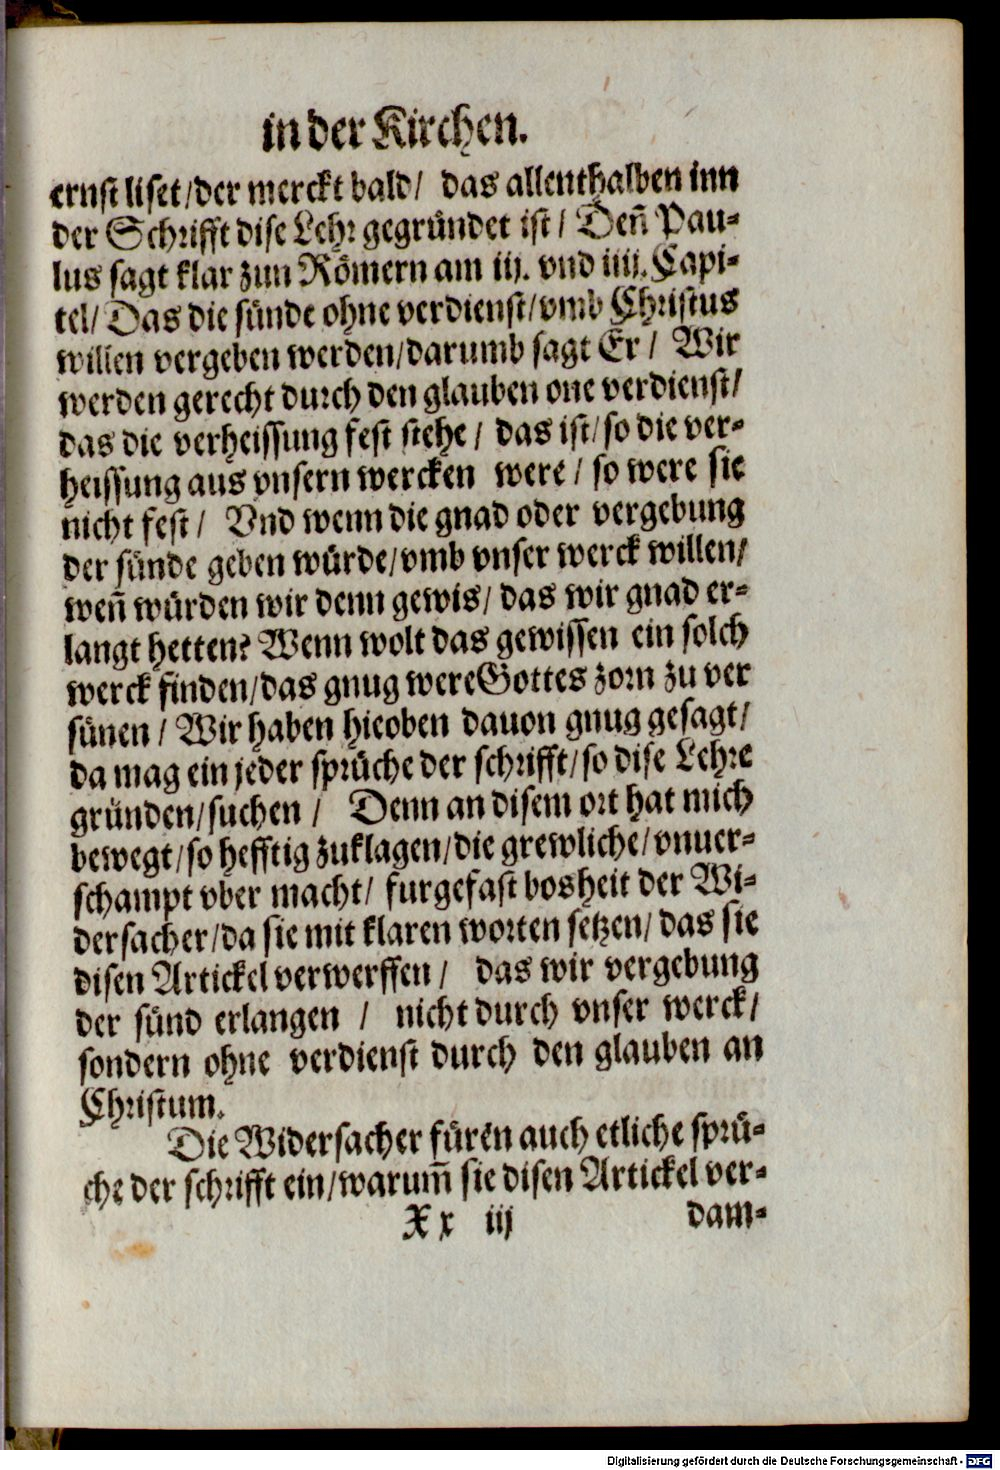 in der Kirchen.
ernst liset/der merckt bald/ das allenthalben inn
der Schrifft dise Lehr gegründet ist/ Den̄ Pau-
lus sagt klar zun Römern am iij. vnd iiij. Capi-
tel/ Das die sünde ohne verdienst/vmb Christus
willen vergeben werden/darumb sagt Er/ Wir
werden gerecht durch den glauben one verdienst/
das die verheissung fest stehe/ das ist/so die ver-
heissung aus vnsern wercken were/ so were sie
nicht fest/ Vnd wenn die gnad oder vergebung
der sünde geben würde/vmb vnser werck willen/
wen̄ würden wir denn gewis/ das wir gnad er-
langt hetten? Wenn wolt das gewissen ein solch
werck finden/das gnug were Gottes zorn zu ver
sünen/ Wir haben hieoben dauon gnug gesagt/
da mag ein jeder sprüche der schrifft/so dise Lehre
gründen/suchen/ Denn an disem ort hat mich
bewegt/so hefftig zuklagen/die grewliche/vnuer-
schampt vber macht/ furgefast bosheit der Wi-
dersacher/da sie mit klaren worten setzen/ das sie
disen Artickel verwerffen/ das wir vergebung
der sünd erlangen / nicht durch vnser werck/
sondern ohne verdienst durch den glauben an
Christum.
Die Widersacher füren auch etliche sprü-
che der schrifft ein/warum̄ sie disen Artickel ver-
Xx iij dam-
Digitalisierung gefördert durch die Deutsche Forschungsgemeinschaft - DFG